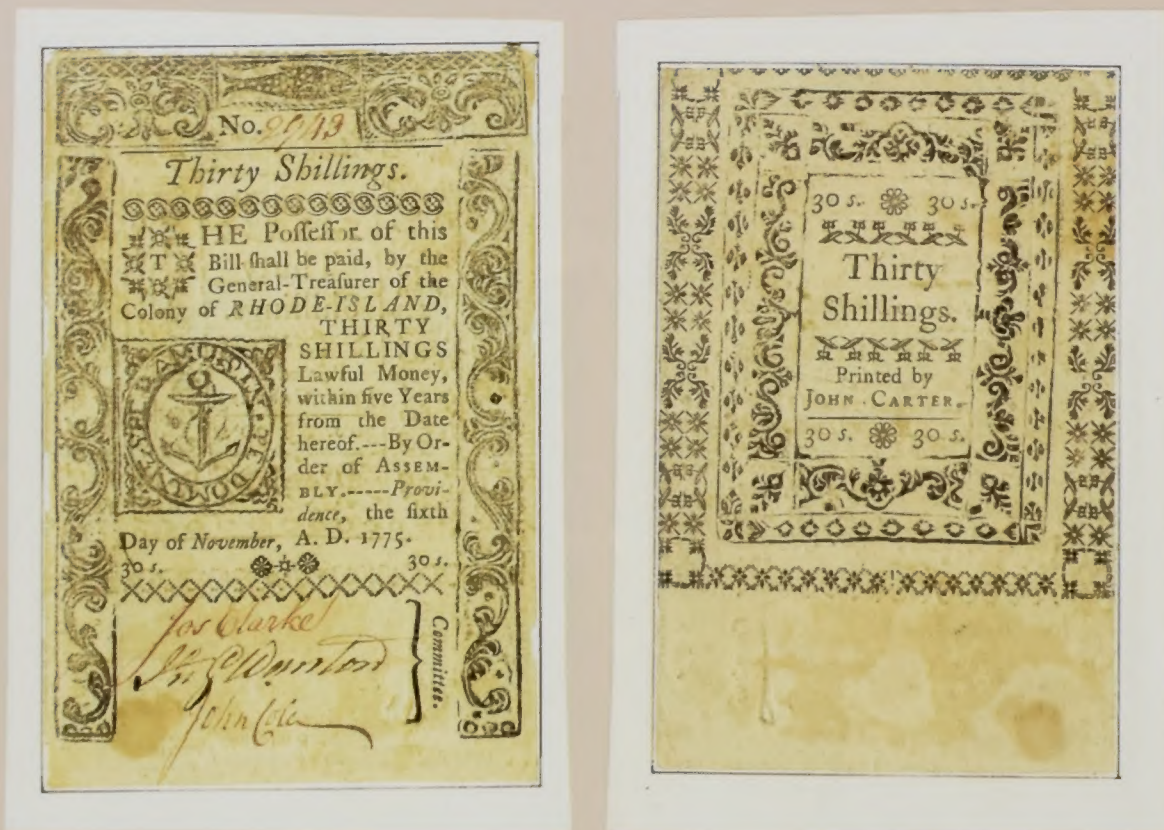 No. 2943
Thirty Shillings.
THE Poſſeſſor of this
Bill ſhall be paid, by the
General-Treaſurer of the
Colony of RHODE-ISLAND,
THIRTY
SHILLINGS
Lawful Money,
within five Years
from the Date
hereof.---By Or-
der of ASSEM-
BLY.-----Provi-
dence, the ſixth
Day of November, A. D. 1775.
30 s. 30 s.
Jos Clarke
John Cole
Committee.
30 s. 30 s.
Thirty
Shillings.
Printed by
JOHN CARTER.
30 s. 30 s.